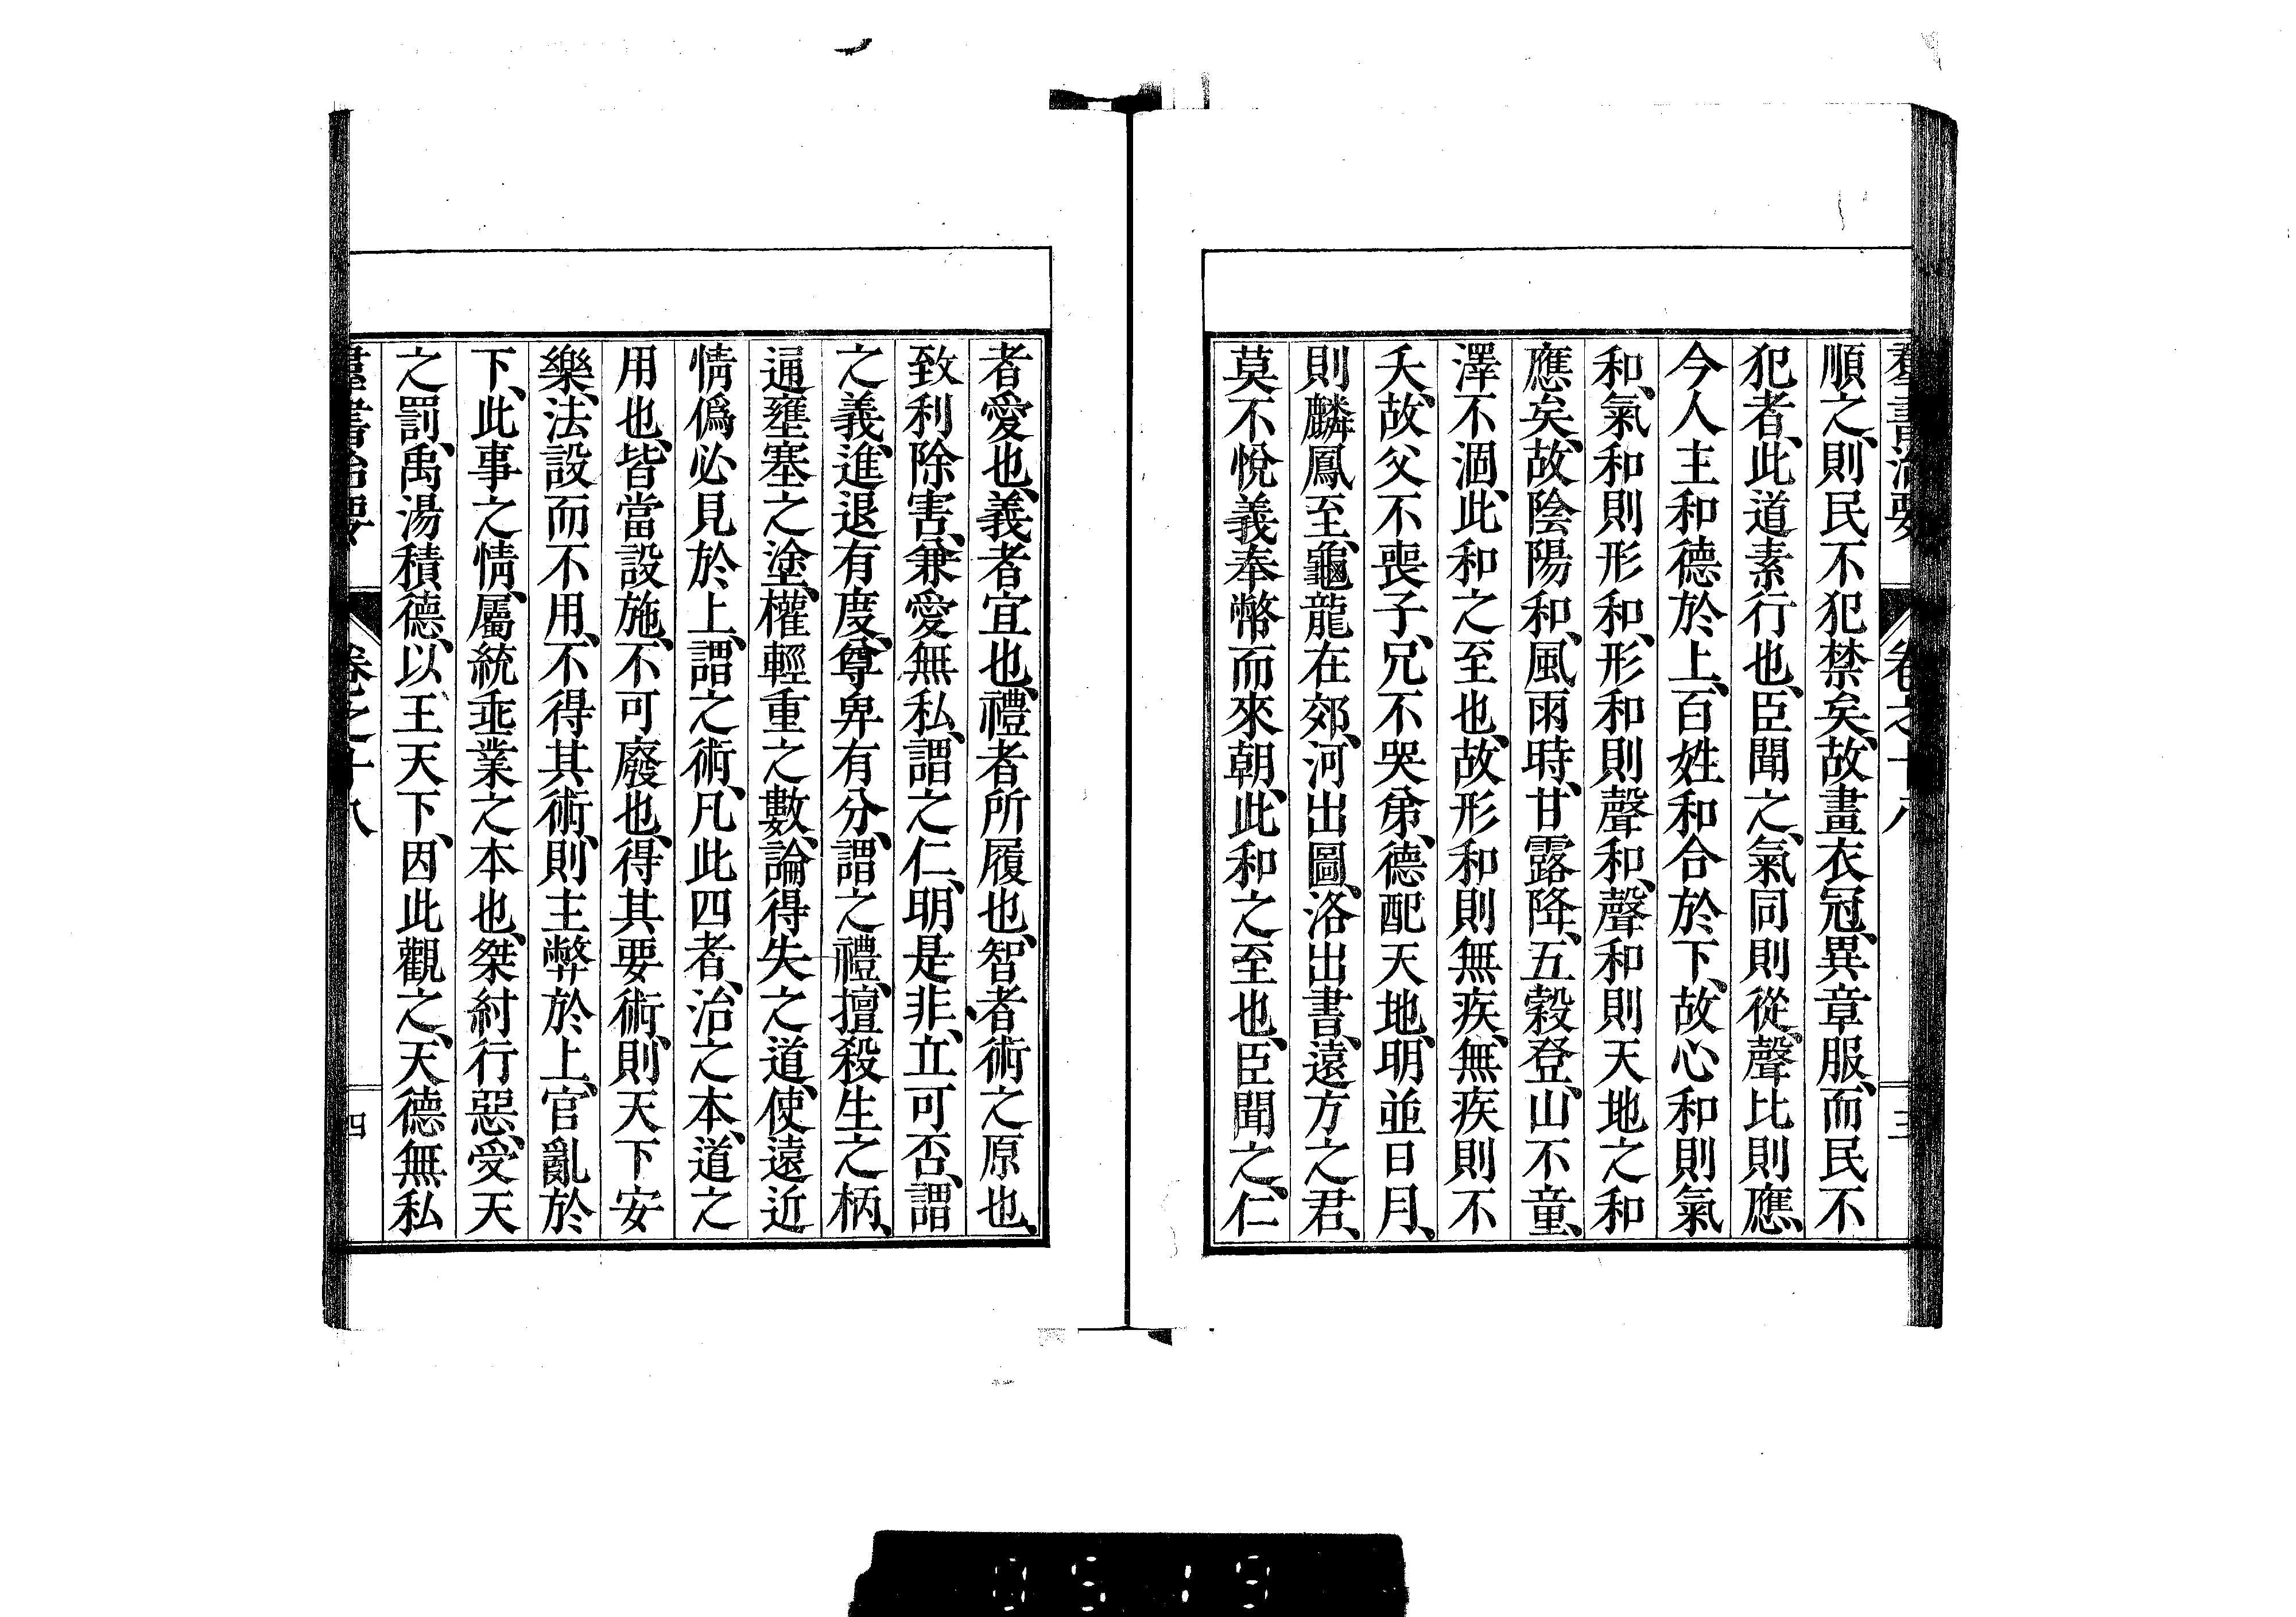 羣書治要 卷之十八 三
順之、則民不犯禁矣、故畫衣冠、異章服、而民不
犯者、此道素行也、臣聞之、氣同則從、聲比則應、
今人主和德於上、百姓和合於下、故心和則氣
和、氣和則形和、形和則聲和、聲和則天地之和
應矣、故陰陽和、風雨時、甘露降、五穀登、山不童、
澤不涸、此和之至也、故形和則無疾、無疾則不
夭、故父不喪子、兄不哭弟、德配天地、明並日月、
則麟鳳至、龜龍在郊、河出圖、洛出書、遠方之君、
莫不悅義奉幣而來朝、此和之至也、臣聞之、仁
者愛也、義者宜也、禮者所履也、智者術之原也、
致利除害、兼愛無私、謂之仁、明是非、立可否、謂
之義、進退有度、尊卑有分、謂之禮、擅殺生之柄、
通壅塞之塗、權輕重之數、論得失之道、使遠近
情僞必見於上、謂之術、凡此四者、治之本、道之
用也、皆當設施、不可廢也、得其要術、則天下安
樂、法設而不用、不得其術、則主弊於上、官亂於
下、此事之情、屬統乖業之本也、桀紂行惡、受天
之罰、禹湯積德、以王天下、因此觀之、天德無私
羣書治要 卷之十八 四
0519